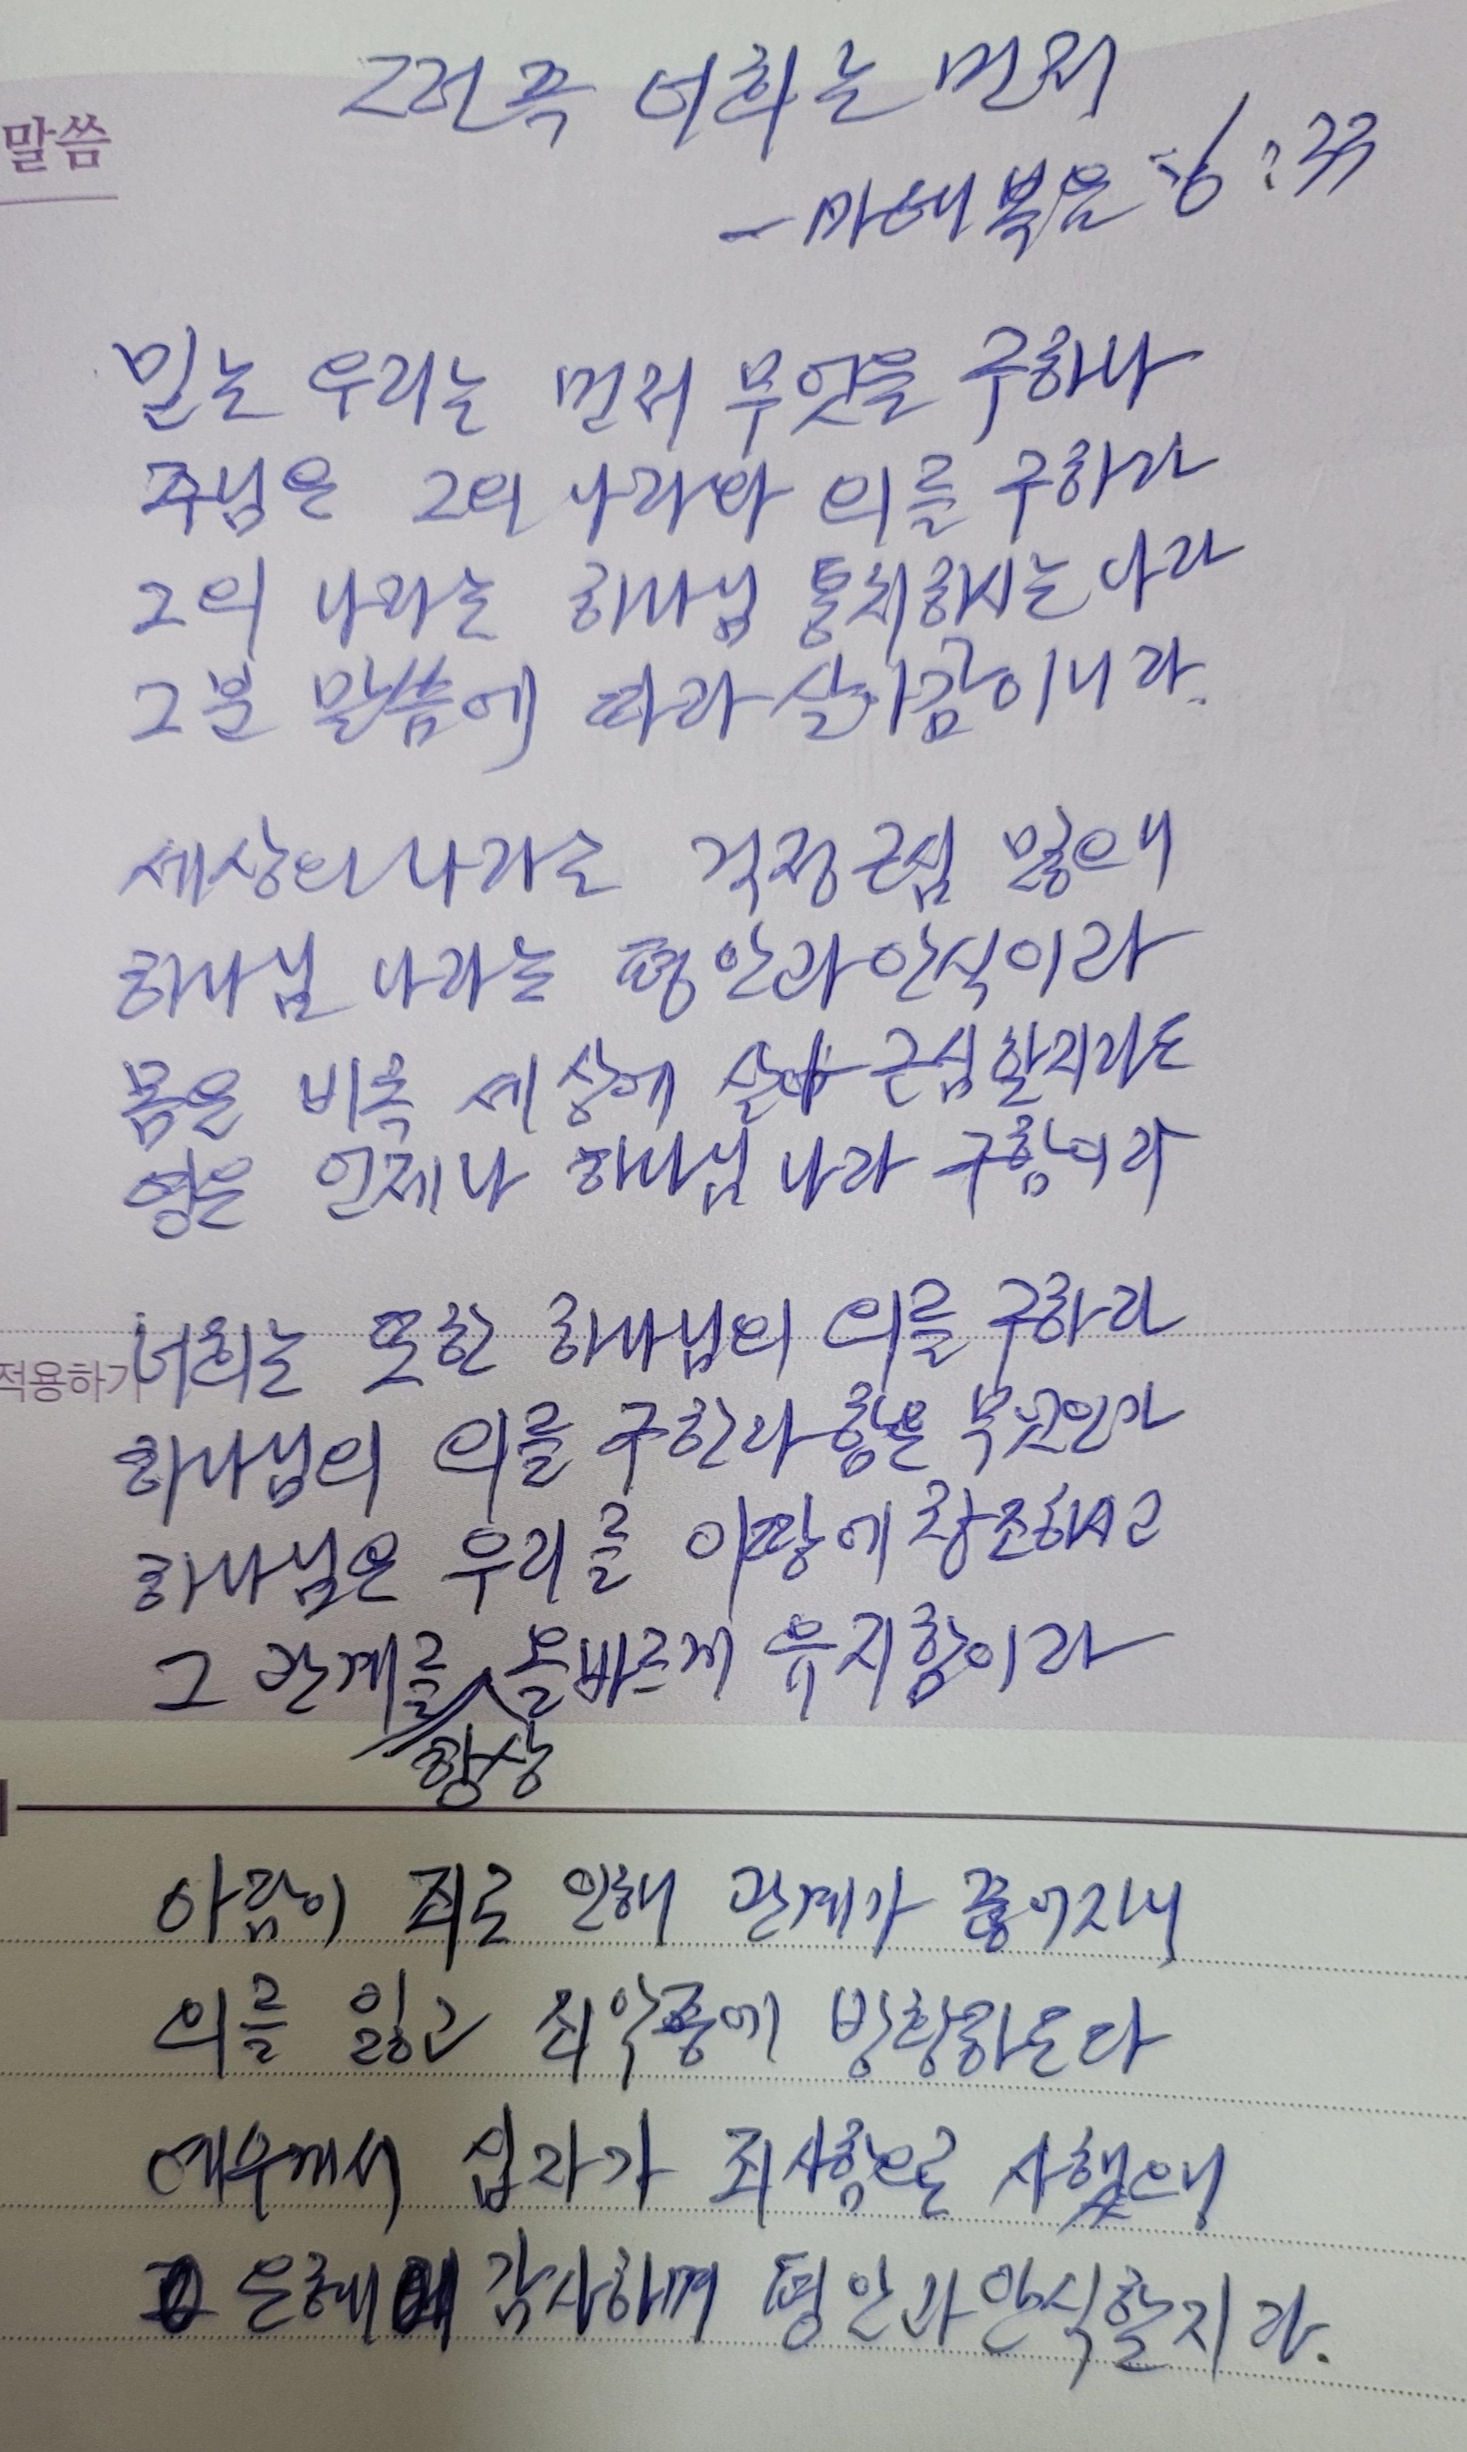 그런즉 너희는 먼저
말씀
- 마태복음 6:33
믿는 우리는 먼저 무엇을 구하나
주님은 그의 나라와 의를 구하라
그의 나라는 하나님 통치하시는 나라
그분 말씀에 따라 살아감이니라.
세상의 나라는 걱정 근심 많으며
하나님 나라는 평안과 안식이라
몸은 비록 세상에 살아 근심할지라도
영은 언제나 하나님 나라 구함이라
너희는 또한 하나님의 의를 구하라
적용하기
하나님의 의를 구한다 함은 무엇인가
하나님은 우리를 이땅에 창조하시고
그 관계를 올바르게 유지함이라
항상
아담이 죄로 인해 관계가 끊어지니
의를 잃고 죄악중에 방황하도다
예수께서 십자가 죄사함으로 사했으니
은혜에 감사하며 평안과 안식할지라.